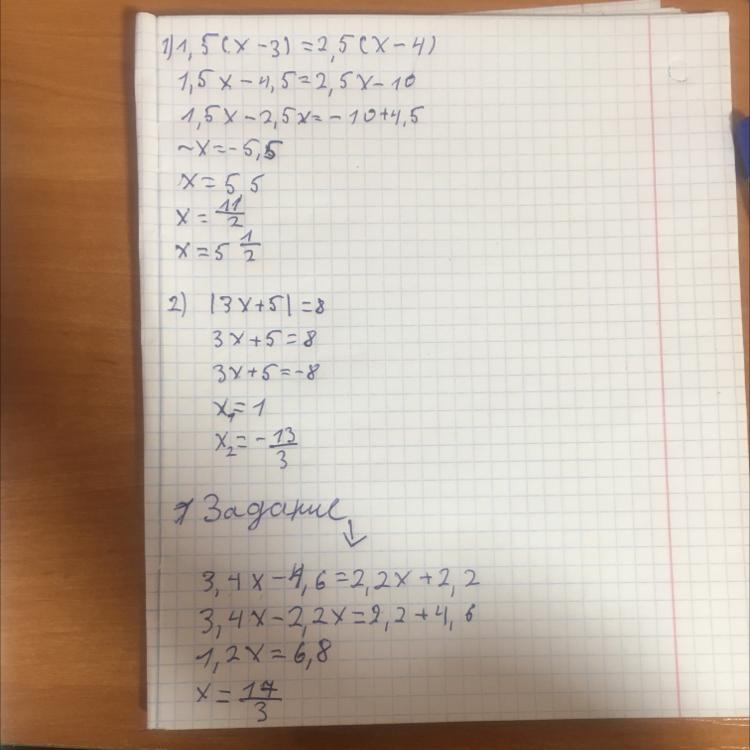 1) 1,5(x-3)=2,5(x-4)
1,5x-4,5=2,5x-10
1,5x-2,5x=-10+4,5
-x=-5,5
x=5 5
x=11/2
x=5 1/2
2) |3x+5|=8
3x+5=8
3x+5=-8
x₁=1
x₂=-13/3
Задание ↓
3,4x-4,6=2,2x+2,2
3,4x-2,2x=2,2+4,6
1,2x=6,8
x=17/3